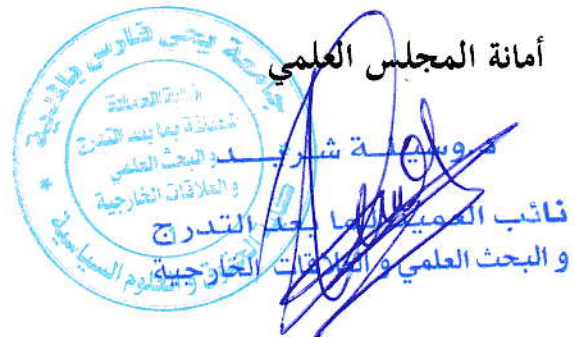 أمانة المجلس العلمي
د. وسيلة شريبط
نائب العميد لما بعد التدرج
و البحث العلمي و العلاقات الخارجية
جامعة يحي فارس بالمدية
نيابة العمادة
المكلفة بما بعد التدرج
و البحث العلمي
و العلاقات الخارجية
كلية الحقوق و العلوم السياسية